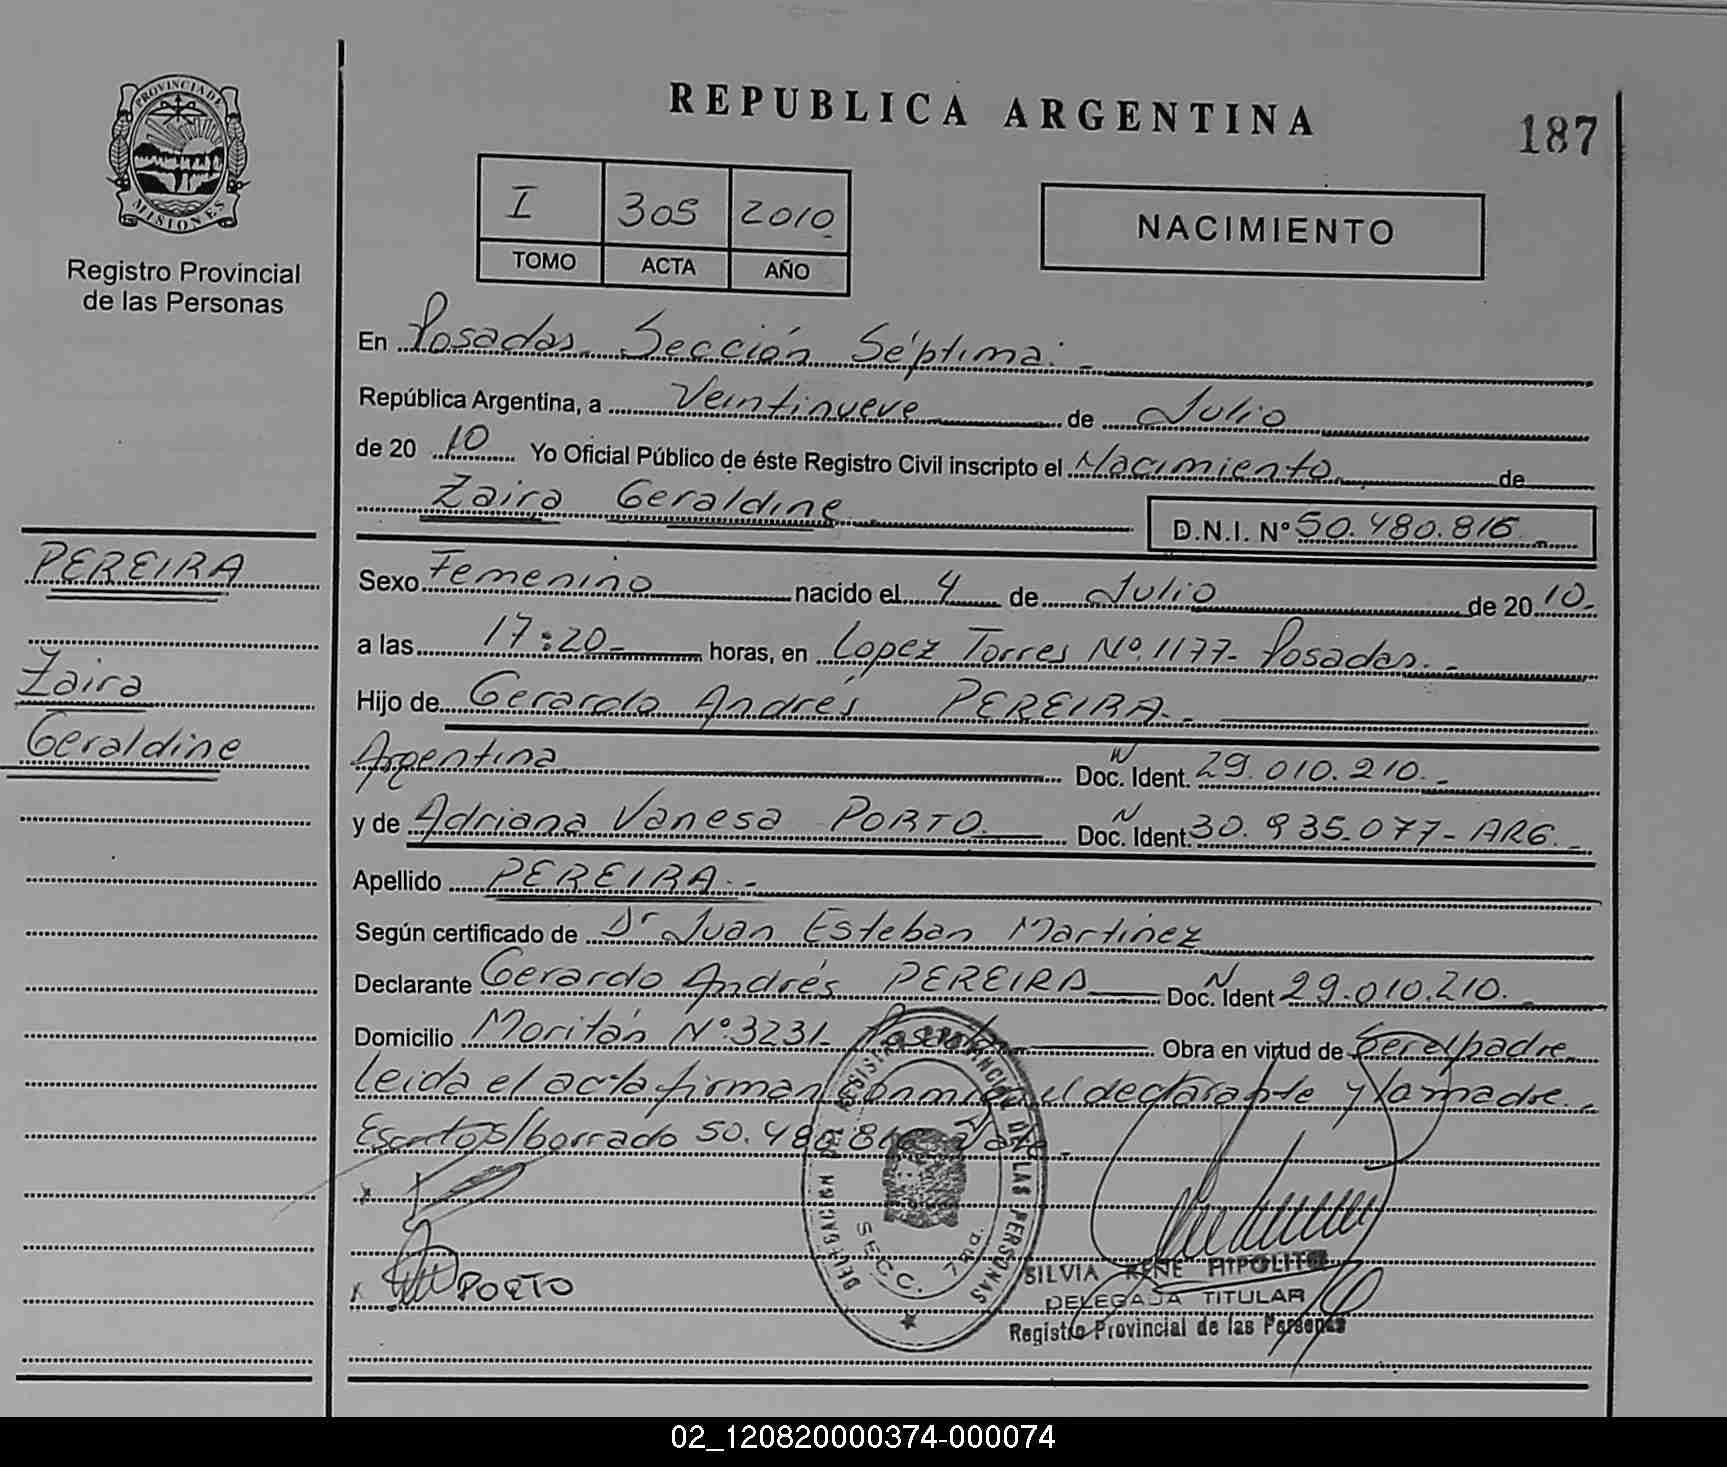 PROVINCIA DE
MISIONES
Registro Provincial
de las Personas
REPUBLICA ARGENTINA
187
I 305 2010
TOMO ACTA AÑO
NACIMIENTO
En Posadas Sección Séptima.-
República Argentina, a Veintinueve de Julio
de 2010 Yo Oficial Público de éste Registro Civil inscripto el Nacimiento de
Zaira Geraldine D.N.I. Nº 50.480.816
PEREIRA
Zaira
Geraldine
Sexo Femenino nacido el 4 de Julio de 2010.-
a las 17:20- horas, en Lopez Torres Nº 1177- Posadas.-
Hijo de Gerardo Andrés PEREIRA.-
Argentina N Doc. Ident. 29.010.210.-
y de Adriana Vanesa PORTO N Doc. Ident. 30.935.077- ARG.-
Apellido PEREIRA.-
Según certificado de Dr Juan Esteban Martinez
Declarante Gerardo Andrés PEREIRA N Doc. Ident 29.010.210.-
Domicilio Moritán Nº 3231- Posadas Obra en virtud de Ser el padre
Leida el acta firman conmigo el declarante y la madre.-
Escrito s/borrado 50.480.816 Vale.-
DELEGACION DEL REGISTRO PROVINCIAL DE LAS PERSONAS
SECC. 7ma.
PORTO
SILVIA RENE HIPOLITO
DELEGADA TITULAR
Registro Provincial de las Personas
02_120820000374-000074